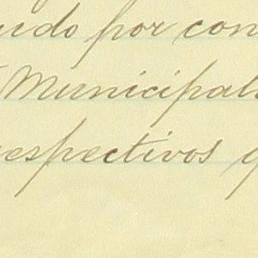 udo por con
Municipal
respectivos q